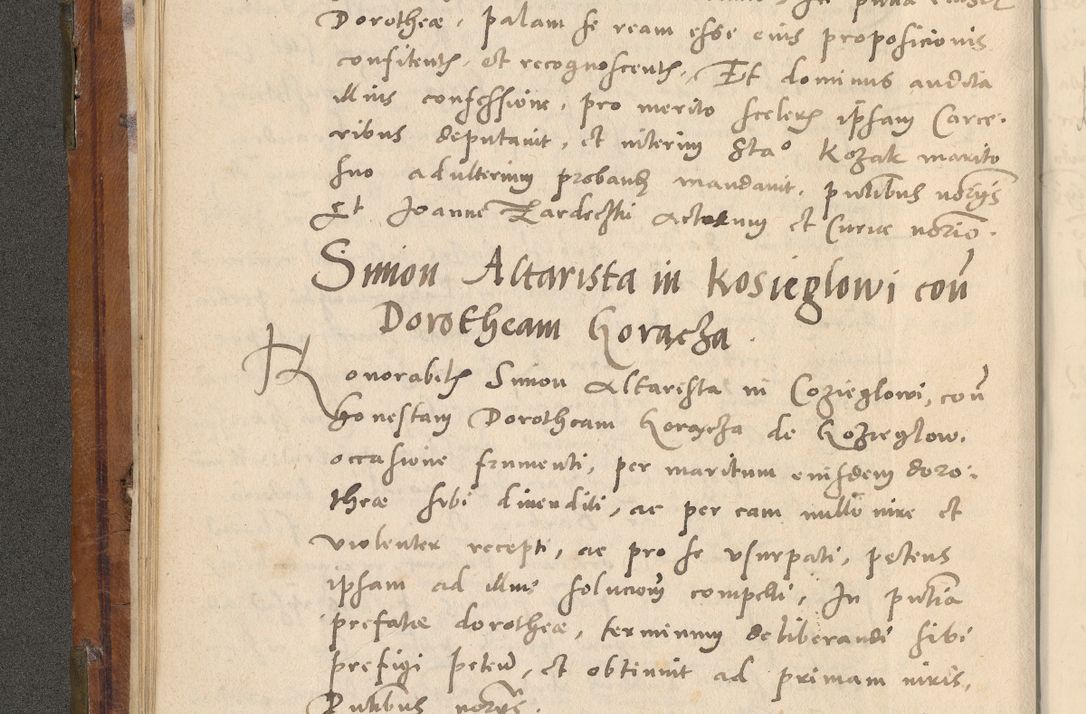 Dorotheæ, palam se ream esse eius proposicionis
confitentis, et recognoscentis, Et dominus audita
illius confessione, pro merito sceleris ipsam Carce-
ribus deputavit, et interim Stao Kozak marito
suo adulterium probandum mandavit, pntibus nōrijs
Et Joanne Lardeczki actorum et Curiæ nōrio.
Simon Altarista in Kosieglowi con
Dorotheam Goraczka.
Honorabilis Simon Altarista in Cozieglowi, con
honestam Dorotheam Goraczka de Kozieglow.
occasione frumenti, per maritum eiusdem doro-
theæ sibi divenditi, ac per eam nullo iure et
violenter recepti, ac pro se usurpati, petens
ipsam ad illius solucionem compelli, In pntia
prefatæ dorotheæ, terminum deliberandi sibi
prefigi petens, et obtinuit ad primam iuris,
Pntibus nōrijs.